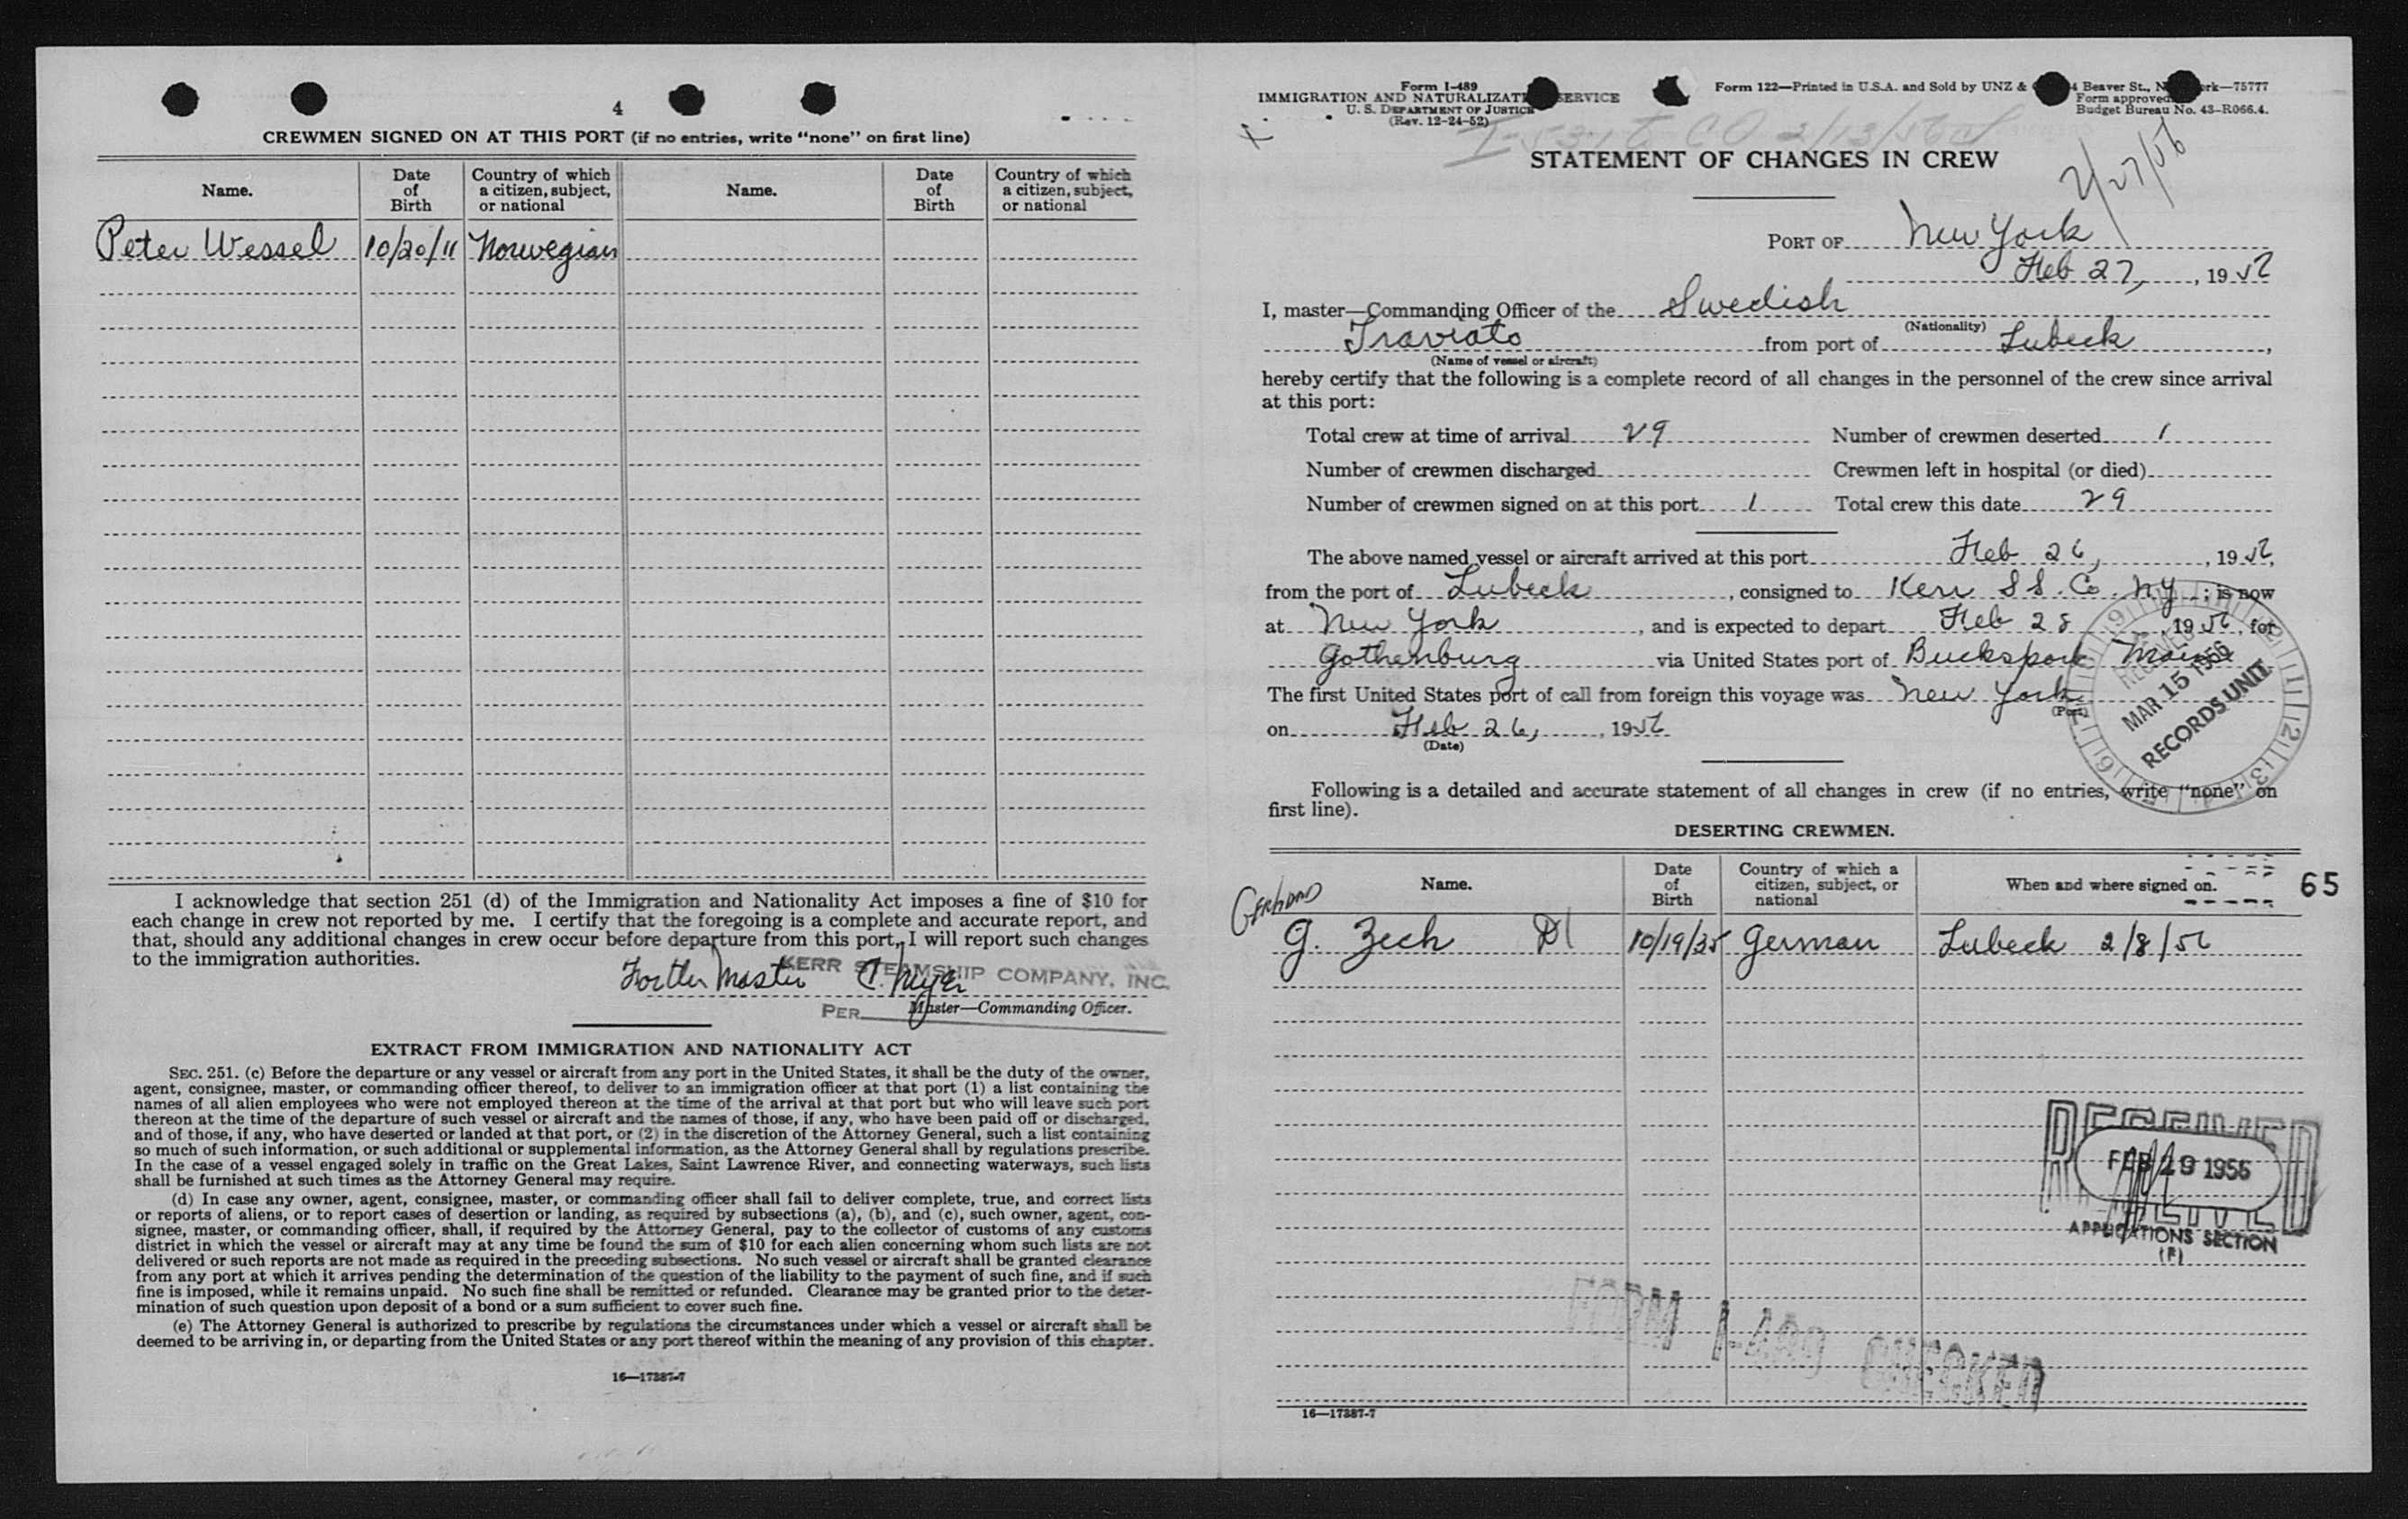 4
CREWMEN SIGNED ON AT THIS PORT (if no entries, write "none" on first line)
Name. Date of Birth Country of which a citizen, subject, or national Name. Date of Birth Country of which a citizen, subject, or national
Peter Wessel 10/20/11 Norwegian
I acknowledge that section 251 (d) of the Immigration and Nationality Act imposes a fine of $10 for
each change in crew not reported by me. I certify that the foregoing is a complete and accurate report, and
that, should any additional changes in crew occur before departure from this port, I will report such changes
to the immigration authorities.
KERR STEAMSHIP COMPANY, INC.
For the Master
PER
Master—Commanding Officer.
EXTRACT FROM IMMIGRATION AND NATIONALITY ACT
SEC. 251. (c) Before the departure or any vessel or aircraft from any port in the United States, it shall be the duty of the owner,
agent, consignee, master, or commanding officer thereof, to deliver to an immigration officer at that port (1) a list containing the
names of all alien employees who were not employed thereon at the time of the arrival at that port but who will leave such port
thereon at the time of the departure of such vessel or aircraft and the names of those, if any, who have been paid off or discharged,
and of those, if any, who have deserted or landed at that port, or (2) in the discretion of the Attorney General, such a list containing
so much of such information, or such additional or supplemental information, as the Attorney General shall by regulations prescribe.
In the case of a vessel engaged solely in traffic on the Great Lakes, Saint Lawrence River, and connecting waterways, such lists
shall be furnished at such times as the Attorney General may require.
(d) In case any owner, agent, consignee, master, or commanding officer shall fail to deliver complete, true, and correct lists
or reports of aliens, or to report cases of desertion or landing, as required by subsections (a), (b), and (c), such owner, agent, con-
signee, master, or commanding officer, shall, if required by the Attorney General, pay to the collector of customs of any customs
district in which the vessel or aircraft may at any time be found the sum of $10 for each alien concerning whom such lists are not
delivered or such reports are not made as required in the preceding subsections. No such vessel or aircraft shall be granted clearance
from any port at which it arrives pending the determination of the question of the liability to the payment of such fine, and if such
fine is imposed, while it remains unpaid. No such fine shall be remitted or refunded. Clearance may be granted prior to the deter-
mination of such question upon deposit of a bond or a sum sufficient to cover such fine.
(e) The Attorney General is authorized to prescribe by regulations the circumstances under which a vessel or aircraft shall be
deemed to be arriving in, or departing from the United States or any port thereof within the meaning of any provision of this chapter.
16—17387-7
Form I-489
IMMIGRATION AND NATURALIZATION SERVICE
U. S. DEPARTMENT OF JUSTICE
(Rev. 12-24-52)
Form 122—Printed in U.S.A. and Sold by UNZ & Beaver St., 75777
Form approved
Budget Bureau No. 43-R066.4.
STATEMENT OF CHANGES IN CREW
2/27/56
PORT OF New York
Feb 27, , 1956
I, master—Commanding Officer of the Swedish
(Nationality)
Traviato from port of Lubeck,
(Name of vessel or aircraft)
hereby certify that the following is a complete record of all changes in the personnel of the crew since arrival
at this port:
Total crew at time of arrival 29 Number of crewmen deserted 1
Number of crewmen discharged Crewmen left in hospital (or died)
Number of crewmen signed on at this port 1 Total crew this date 29
The above named vessel or aircraft arrived at this port Feb 26, , 1956,
from the port of Lubeck, consigned to Kerr S S. Co. N.Y.; is now
at New York, and is expected to depart Feb 28, 1956, for
Gothenburg via United States port of Bucksport Maine
The first United States port of call from foreign this voyage was New York
(Port)
on Feb 26, , 1956
(Date)
RECEIVED
MAR 15 1956
RECORDS UNIT
Following is a detailed and accurate statement of all changes in crew (if no entries, write "none" on
first line).
DESERTING CREWMEN.
Name. Date of Birth Country of which a citizen, subject, or national When and where signed on.
65
GERHARD
G. Zech 10/19/35 German Lubeck 2/8/56
RECEIVED
FEB 29 1956
APPLICATIONS SECTION
(F)
FORM I-489 CHECKED
16—17387-7